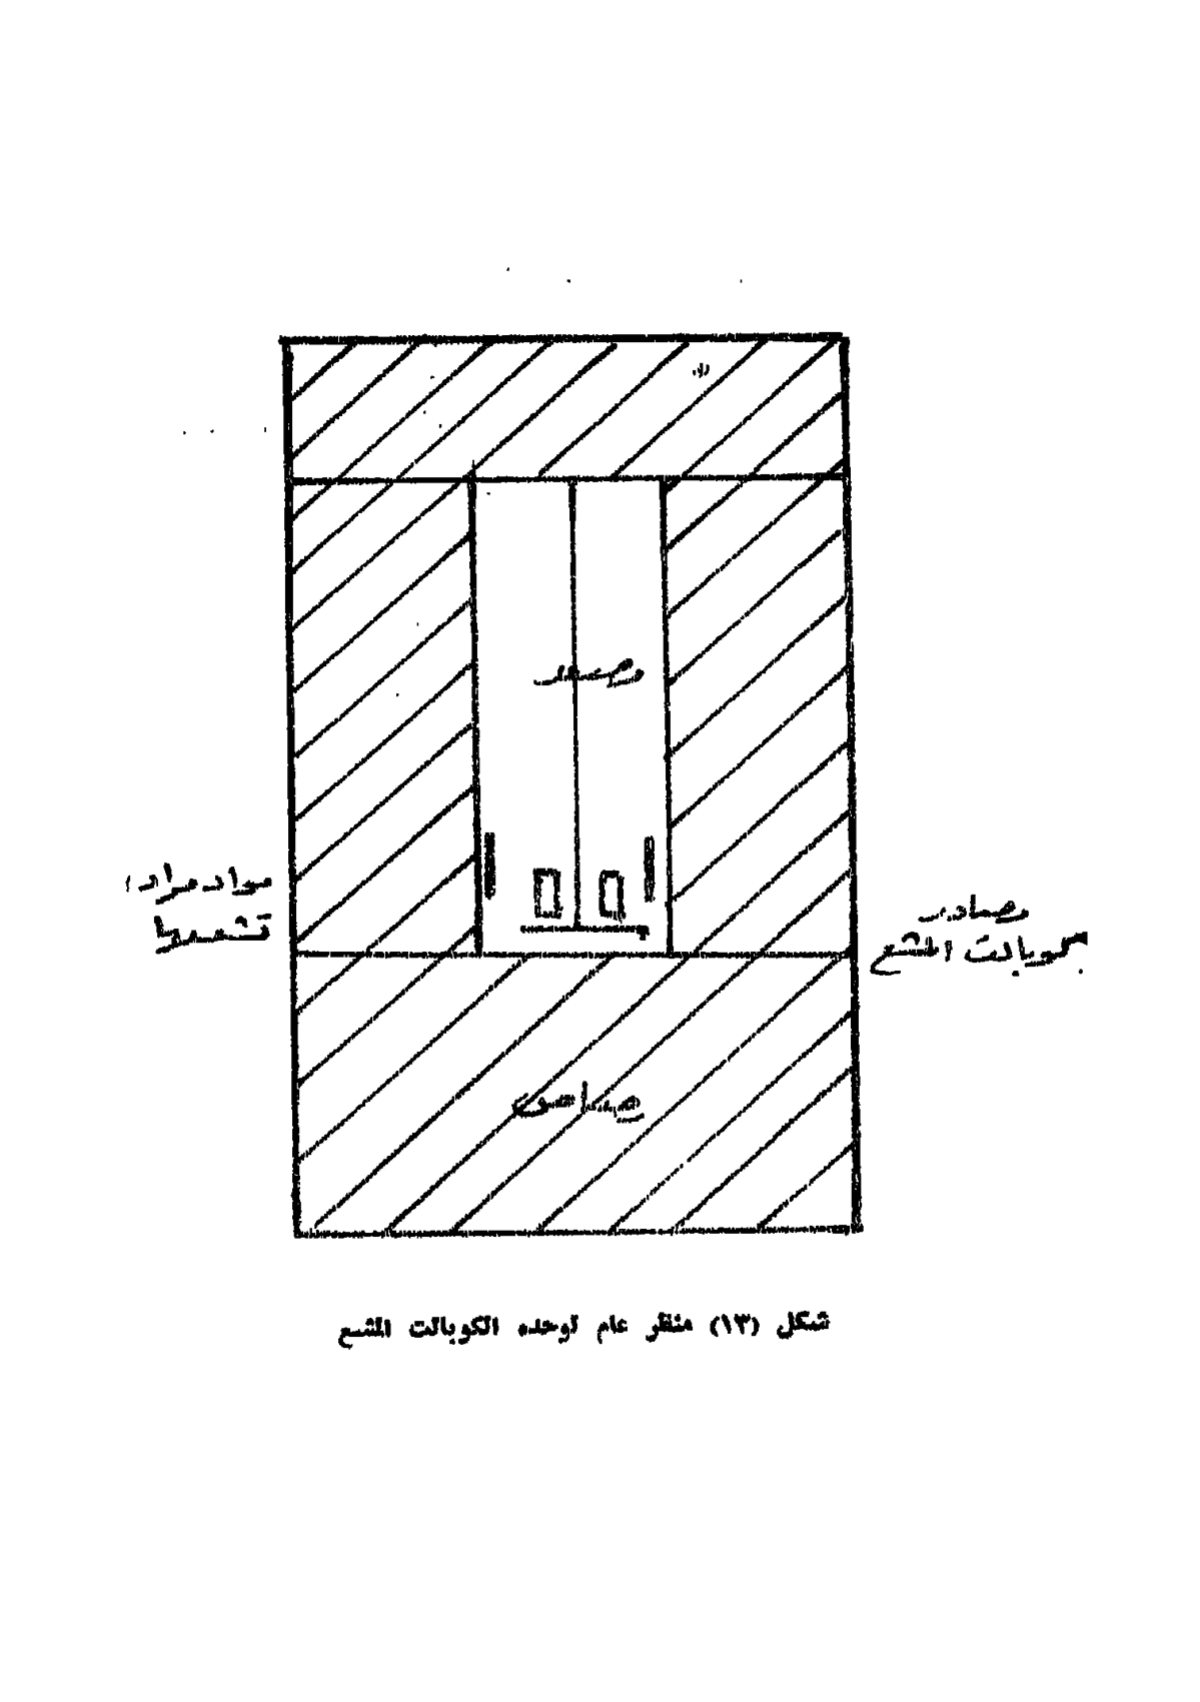 مصعد
مواد مراد
تشعيعها
مصادر
كوبالت المشع
رصاص
شكل (١٣) منظر عام لوحده الكوبالت المشع